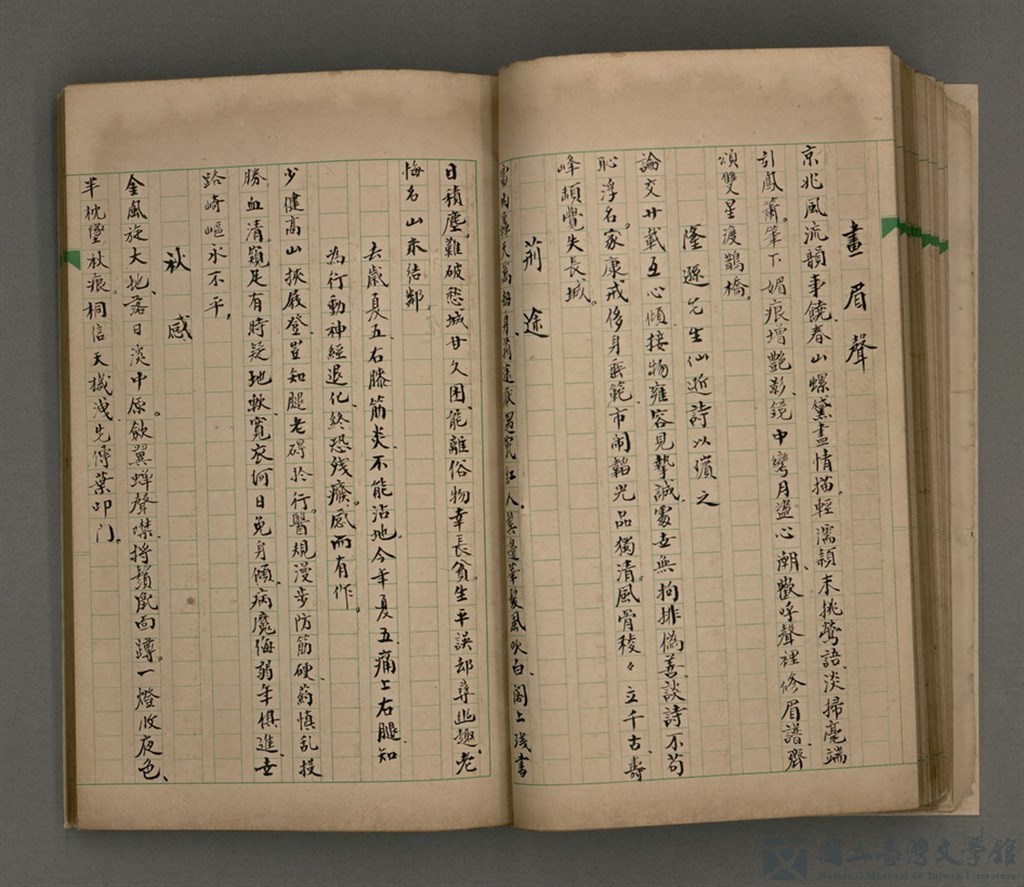 畫眉聲
京兆風流韻事饒、春山螺黛畫情描。輕濡穎末挑鶯語、淡掃毫端
引鳳簫。筆下媚痕增艷影、鏡中彎月盪心潮、歡呼聲裡修眉譜、齊
頌雙星渡鵲橋。
隆遯先生仙逝詩以輓之
論交廿載互心傾、接物雍容見摯誠、處世無拘排偽善、談詩不苟
恥浮名。家康戒侈身垂範、市鬧韜光品獨清。風骨稜々立千古、壽
峰頓覺失長城。
荊途
人。鬢邊華髮風吹白、閣上殘書
日積塵。難破愁城廿久困、能離俗物幸長貧。生平誤却尋幽趣、老
悔名山未結鄰。
去歲夏五右膝筋炎、不能沾地。今年夏五、痛上右腿、知
為行動神經退化、終恐殘癈。感而有作。
少健高山挾屐登、豈知腿老碍於行。醫規漫步防筋硬、葯慎乱投
勝血清。窺足有時疑地軟、寬衣何日免身傾、病魔侮弱年俱進、世
路崎嶇永不平。
秋感
金風旋大地、落日淡中原。斂翼蟬聲噤、將鬚鼠面蹲。一燈收夜色、
半枕墮秋痕。桐信天機洩、先傳葉叩门。
國立臺灣文學館
National Museum of Taiwan Literature